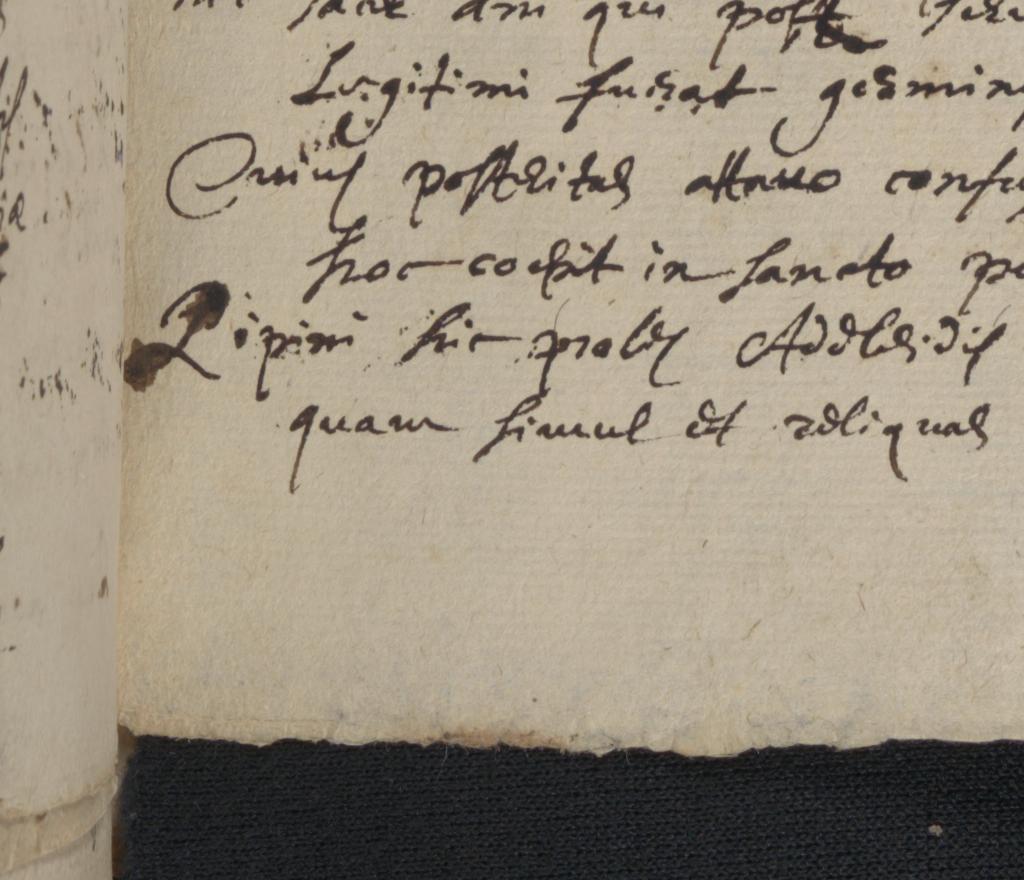 qui post
Legitimi fuerat germin
Cuius posteritas attauo confu
hoc coepit in sancto po
Pipini hic proles Adeleidis
quam simul et reliquas